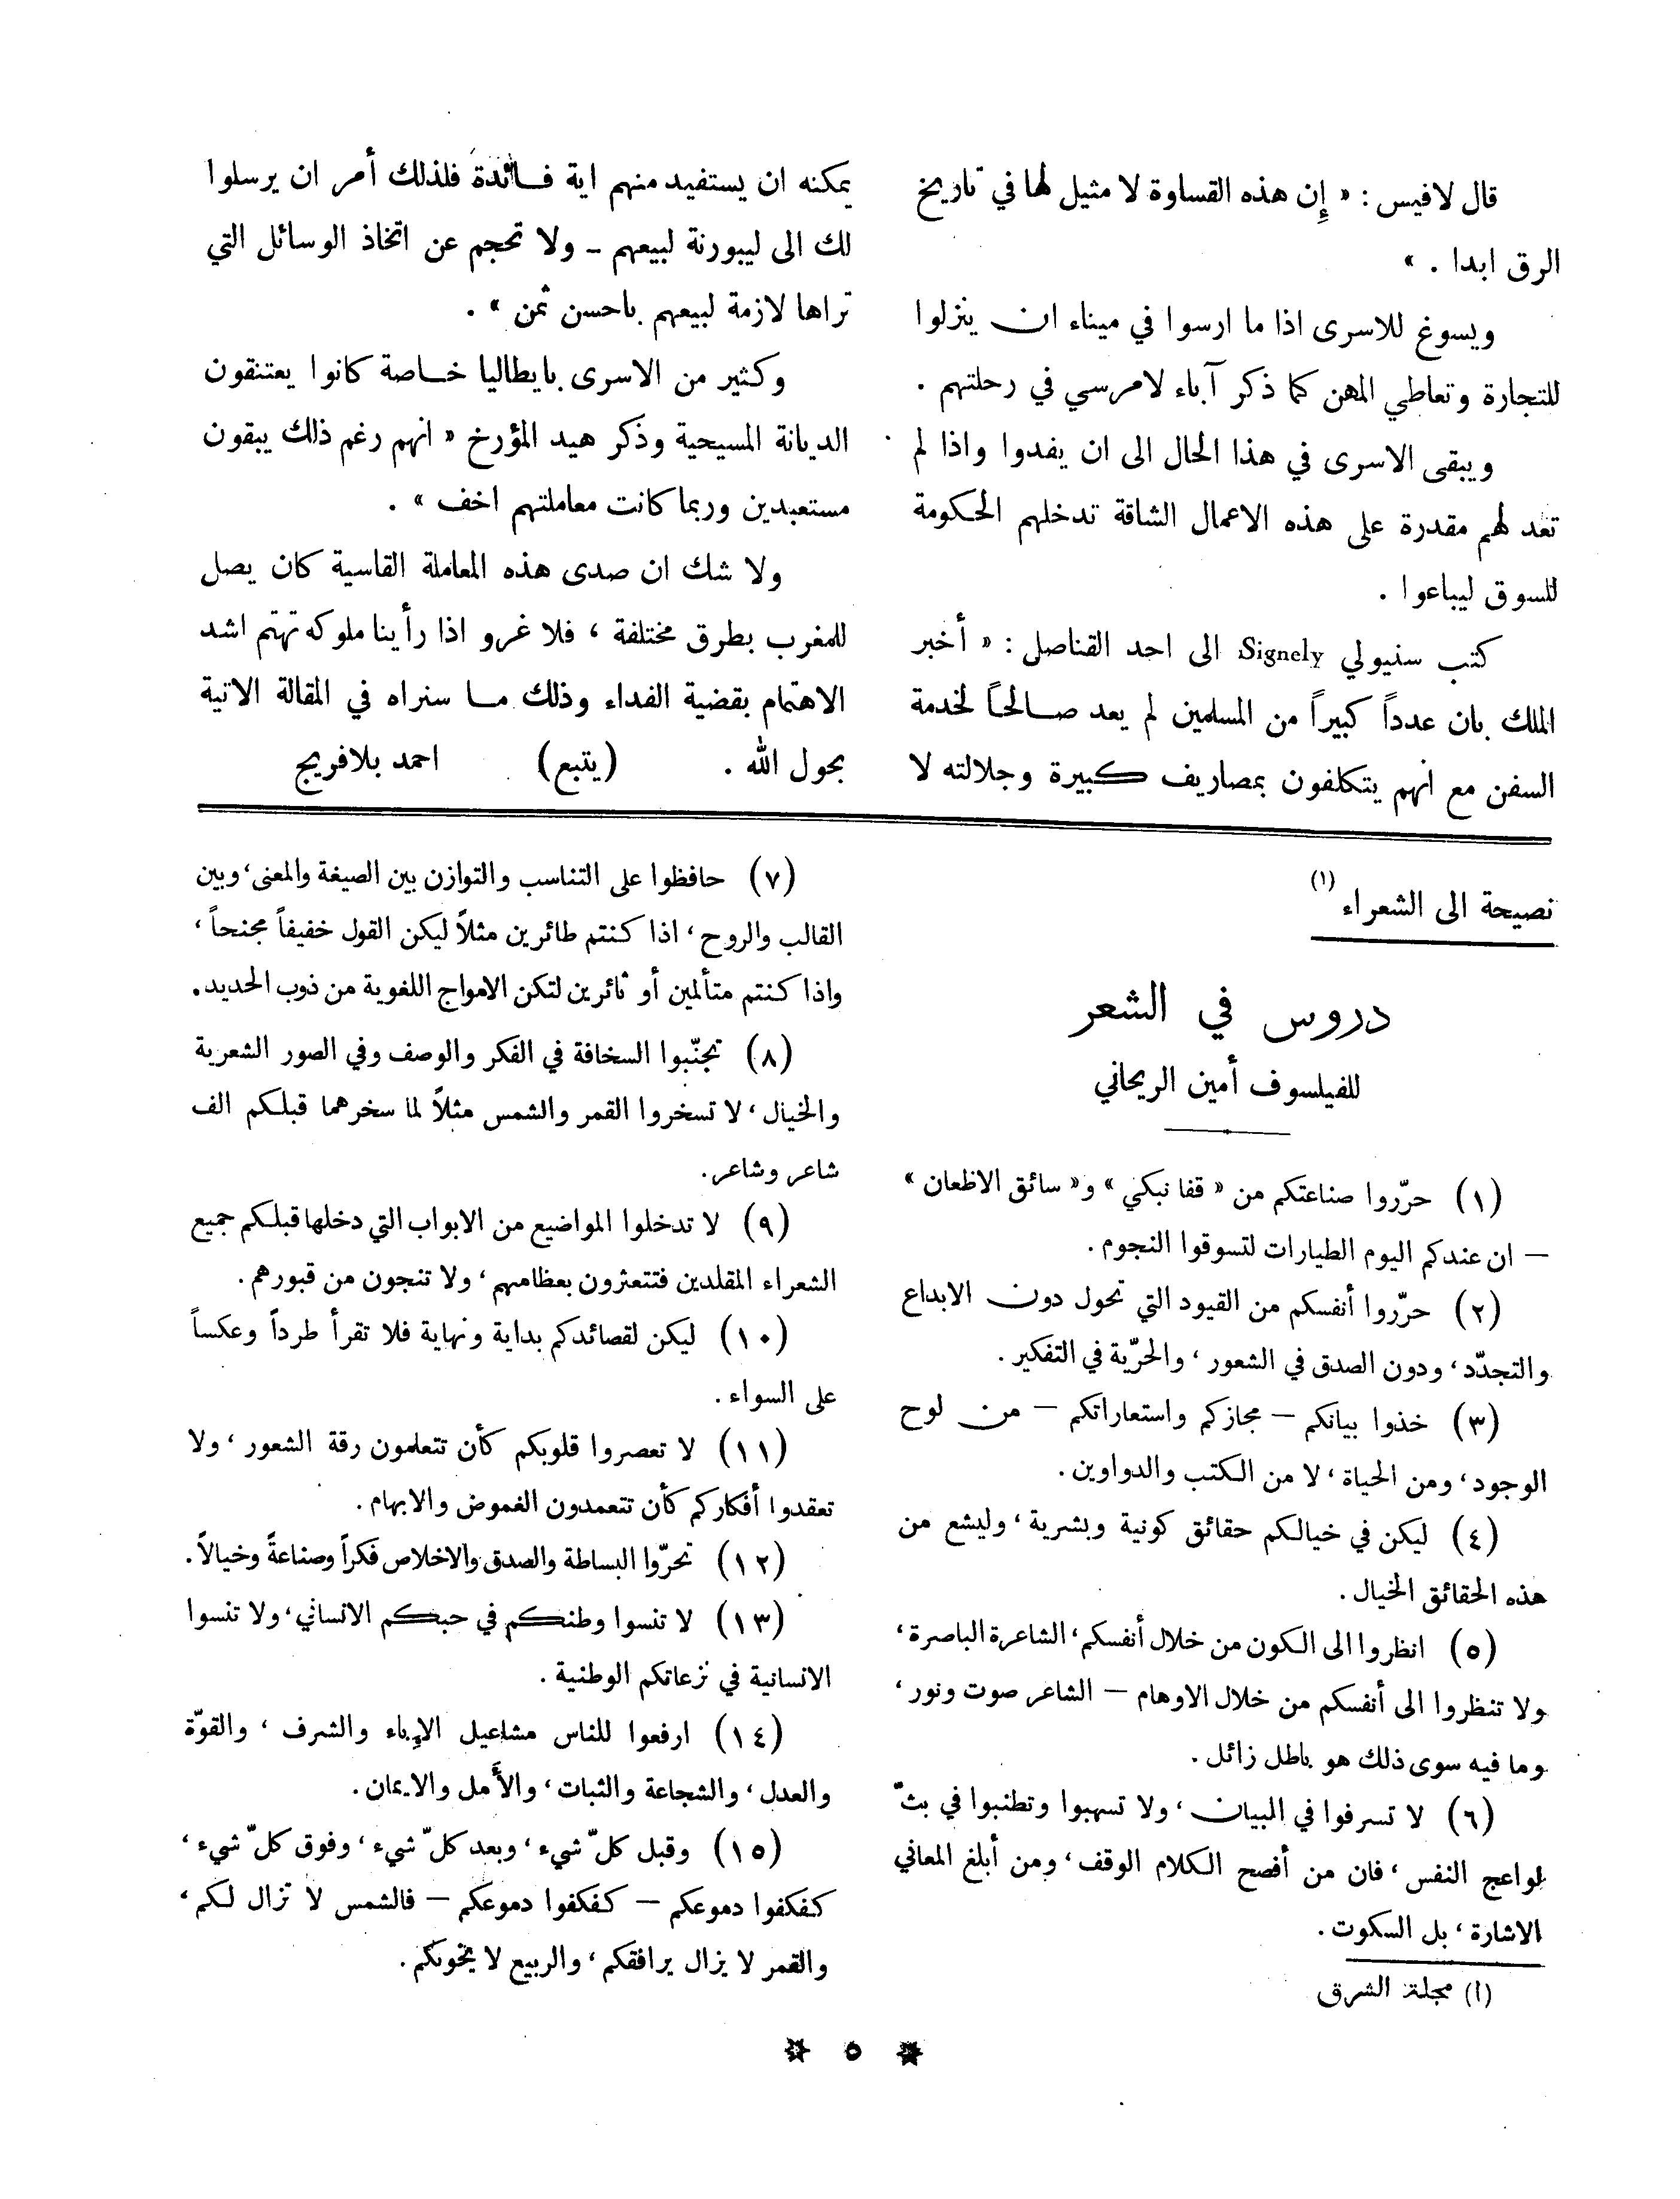 قال لافيس : « إِن هذه القساوة لا مثيل لها في تاريخ
الرق ابدا . »
ويسوغ للاسرى اذا ما ارسوا في ميناء ان ينزلوا
للتجارة وتعاطي المهن كما ذكر آباء لامرسي في رحلتهم .
ويبقى الاسرى في هذا الحال الى ان يفدوا واذا لم
تعد لهم مقدرة على هذه الاعمال الشاقة تدخلهم الحكومة
للسوق ليباعوا .
كتب سنيولي Signely الى احد القناصل : « أخبر
الملك بان عدداً كبيراً من المسلمين لم يعد صالحاً لخدمة
السفن مع انهم يتكلفون بمصاريف كبيرة وجلالته لا
يمكنه ان يستفيد منهم اية فائدة فلذلك أمر ان يرسلوا
لك الى ليبورنة لبيعهم - ولا تحجم عن اتخاذ الوسائل التي
تراها لازمة لبيعهم باحسن ثمن » .
وكثير من الاسرى بايطاليا خاصة كانوا يعتنقون
الديانة المسيحية وذكر هيد المؤرخ « انهم رغم ذلك يبقون
مستعبدين وربما كانت معاملتهم اخف » .
ولا شك ان صدى هذه المعاملة القاسية كان يصل
للمغرب بطرق مختلفة ، فلا غرو اذا رأينا ملوكه تهتم اشد
الاهتمام بقضية الفداء وذلك ما سنراه في المقالة الاتية
بحول الله . (يتبع) احمد بلافريج
نصيحة الى الشعراء (١)
دروس في الشعر
للفيلسوف أمين الريحاني
(١) حرّروا صناعتكم من « قفا نبكي » و« سائق الاظعان »
— ان عندكم اليوم الطيارات لتسوقوا النجوم .
(٢) حرّروا أنفسكم من القيود التي تحول دون الابداع
والتجدّد ، ودون الصدق في الشعور ، والحرّية في التفكير .
(٣) خذوا بيانكم — مجازكم واستعاراتكم — من لوح
الوجود ، ومن الحياة ، لا من الكتب والدواوين .
(٤) ليكن في خيالكم حقائق كونية وبشرية ، وليشع من
هذه الحقائق الخيال .
(٥) انظروا الى الكون من خلال أنفسكم ، الشاعرة الباصرة ،
ولا تنظروا الى أنفسكم من خلال الاوهام — الشاعر صوت ونور ،
وما فيه سوى ذلك هو باطل زائل .
(٦) لا تسرفوا في البيان ، ولا تسهبوا وتطنبوا في بثّ
لواعج النفس ، فان من أفصح الكلام الوقف ، ومن أبلغ المعاني
الاشارة ، بل السكوت .
(١) مجلة الشرق
(٧) حافظوا على التناسب والتوازن بين الصيغة والمعنى ، وبين
القالب والروح ، اذا كنتم طائرين مثلاً ليكن القول خفيفاً مجنحاً ،
واذا كنتم متألمين أو ثائرين لتكن الامواج اللغوية من ذوب الحديد .
(٨) تجنّبوا السخافة في الفكر والوصف وفي الصور الشعرية
والخيال ، لا تسخروا القمر والشمس مثلاً لما سخرهما قبلكم الف
شاعر وشاعر .
(٩) لا تدخلوا المواضيع من الابواب التي دخلها قبلكم جميع
الشعراء المقلدين فتتعثرون بعظامهم ، ولا تنجون من قبورهم .
(١٠) ليكن لقصائدكم بداية ونهاية فلا تقرأ طرداً وعكساً
على السواء .
(١١) لا تعصروا قلوبكم كأن تتعلمون رقة الشعور ، ولا
تعقدوا أفكاركم كأن تتعمدون الغموض والابهام .
(١٢) تحرّوا البساطة والصدق والاخلاص فكراً وصناعةً وخيالاً .
(١٣) لا تنسوا وطنكم في حبكم الانساني ، ولا تنسوا
الانسانية في نزعاتكم الوطنية .
(١٤) ارفعوا للناس مشاعيل الإباء والشرف ، والقوّة
والعدل ، والشجاعة والثبات ، والأمل والايمان .
(١٥) وقبل كلّ شيء ، وبعد كلّ شيء ، وفوق كلّ شيء ،
كفكفوا دموعكم — كفكفوا دموعكم — فالشمس لا تزال لكم ،
والقمر لا يزال يرافقكم ، والربيع لا يخونكم .
* ٥ *